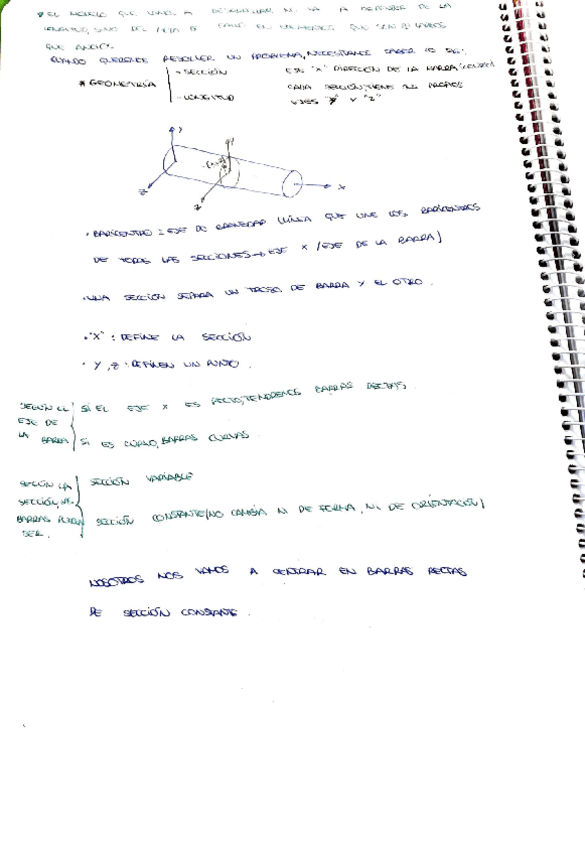 EL MODELO QUE VAMOS A DESARROLLAR NI VA A DEPENDER DE LA
QUE ANCHO.
CUANDO QUEREMOS RESOLVER UN PROBLEMA, NECESITAMOS SABER
* GEOMETRÍA
- SECCIÓN
- LONGITUD
EJE "X" DIRECCIÓN DE LA BARRA
CADA SECCIÓN TIENE SUS PROPIOS
EJES "Y" Y "Z"
Y
Y
Z
Z
X
· BARICENTRO = EJE DE GRAVEDAD (LÍNEA QUE UNE LOS BARICENTROS
DE TODAS LAS SECCIONES → EJE X /EJE DE LA BARRA)
· UNA SECCIÓN SEPARA UN TROZO DE BARRA Y EL OTRO.
· "X" : DEFINE LA SECCIÓN
· Y, Z : DEFINEN UN PUNTO.
SEGÚN EL EJE DE LA BARRA
SI EL EJE X ES RECTO, TENDREMOS BARRAS RECTAS.
SI ES CURVO, BARRAS CURVAS
SEGÚN LA SECCIÓN, LAS BARRAS PUEDEN SER.
SECCIÓN VARIABLE
SECCIÓN CONSTANTE (NO CAMBIA NI DE FORMA, NI DE ORIENTACIÓN)
NOSOTROS NOS VAMOS A CENTRAR EN BARRAS RECTAS
DE SECCIÓN CONSTANTE.